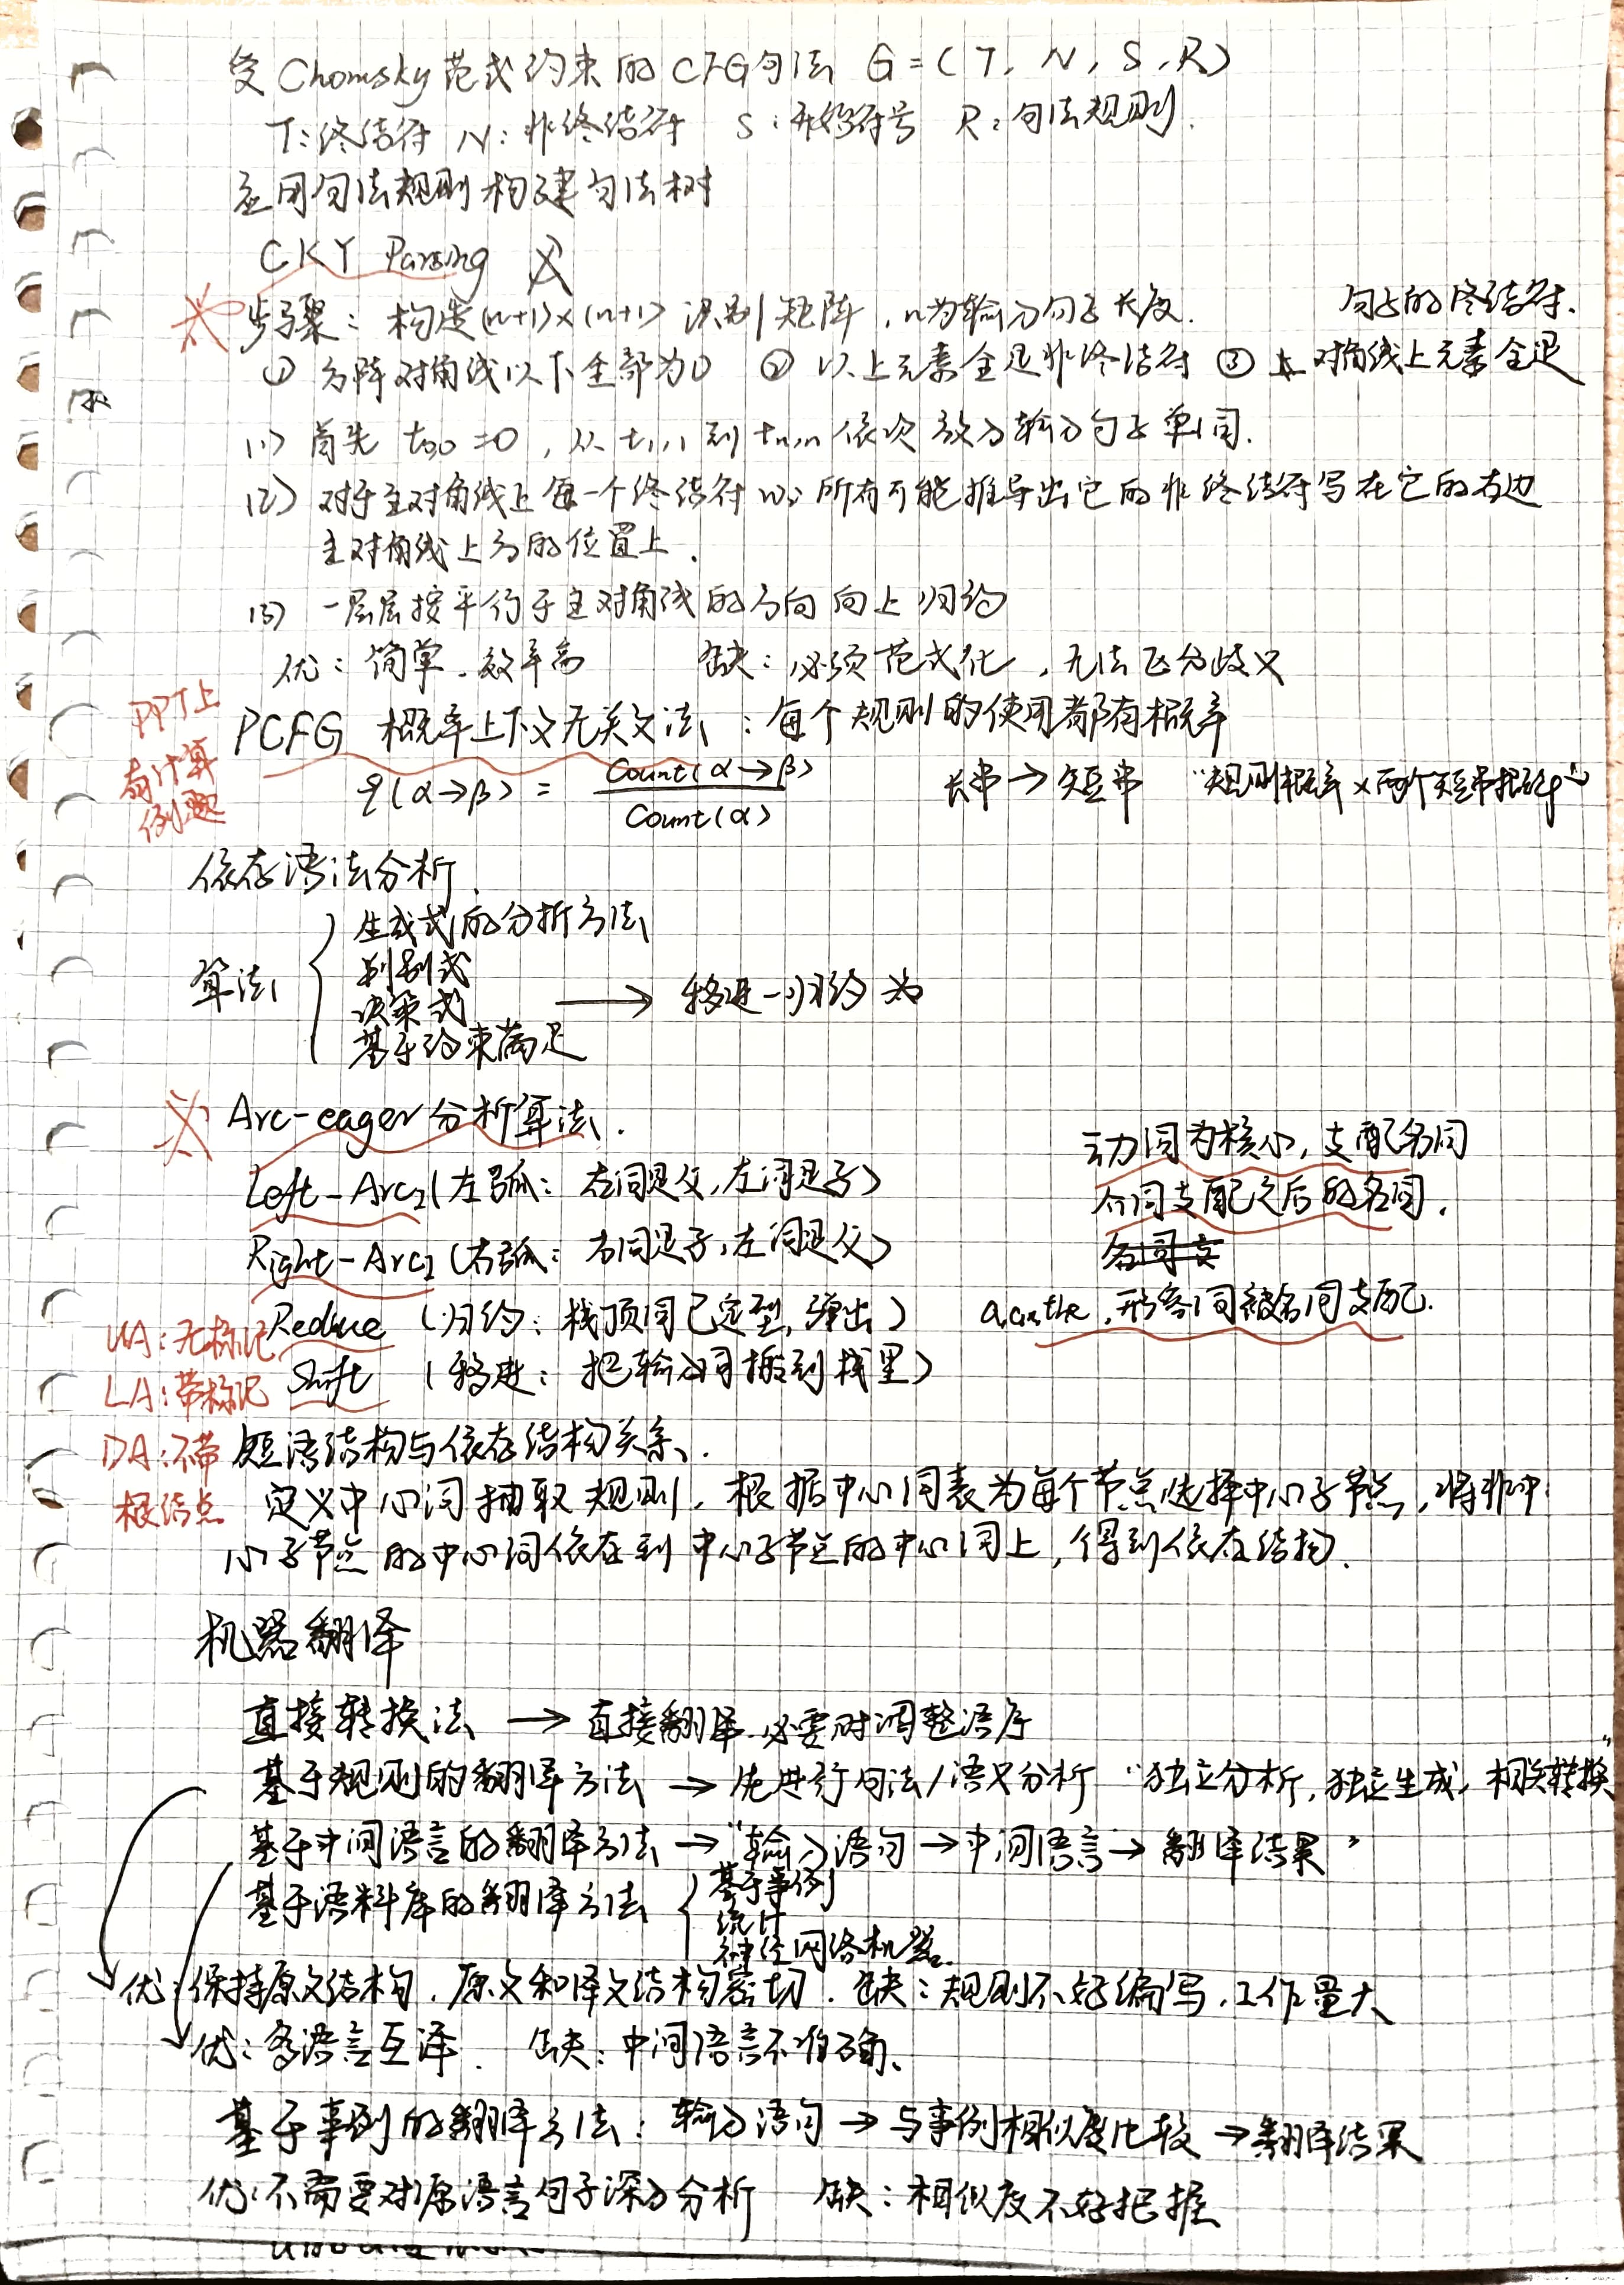 受Chomsky范式约束的CFG句法 G=(T, N, S, R)
T:终结符 N:非终结符 S:开始符号 R:句法规则.
应用句法规则构建句法树
CKY Parsing
步骤:构造(n+1)×(n+1)识别矩阵,n为输入句子长度.
句子的终结符.
① 方阵对角线以下全部为0 ② 以上元素全是非终结符 ③ 主对角线上元素全是
(1) 首先 t0,0=0,从t1,1到tn,n依次放入输入句子单词.
(2) 对于主对角线上每一个终结符wi 所有可能推导出它的非终结符写在它的右边
主对角线上方的位置上.
(3) 一层层按平行于主对角线的方向向上归约
优:简单、效率高 缺:必须范式化,无法区分歧义
PPT上
有计算
例题
PCFG 概率上下文无关文法:每个规则的使用都有概率
q(α→β) = Count(α→β) / Count(α) 长串→短串 "规则概率×两个短串概率"
依存语法分析.
算法
生成式的分析方法
判别式
决策式 → 移进-归约
基于约束满足
Arc-eager分析算法.
动词为核心,支配名词
Left-Arc(左弧:右词是父,左词是子)
介词支配之后的名词.
Right-Arc(右弧:右词是子,左词是父)
Reduce (归约:栈顶词已定型,弹出)
a,an,the,形容词被名词支配.
UA:无标记
Shift (移进:把输入词搬到栈里)
LA:带标记
DA:不带
根结点
短语结构与依存结构关系.
定义中心词抽取规则,根据中心词表为每个节点选择中心子节点,将非中
心子节点的中心词依存到中心子节点的中心词上,得到依存结构.
机器翻译
直接转换法 → 直接翻译.必要时调整语序
基于规则的翻译方法 → 先进行句法/语义分析 "独立分析,独立生成,相关转换"
基于中间语言的翻译方法 → "输入语句→中间语言→翻译结果"
基于语料库的翻译方法
基于事例
统计
神经网络机器.
优:保持原文结构.原文和译文结构密切. 缺:规则不好编写.工作量大
优:多语言互译. 缺:中间语言不准确.
基于事例的翻译方法:输入语句→与事例相似度比较→翻译结果
优:不需要对源语言句子深入分析 缺:相似度不好把握